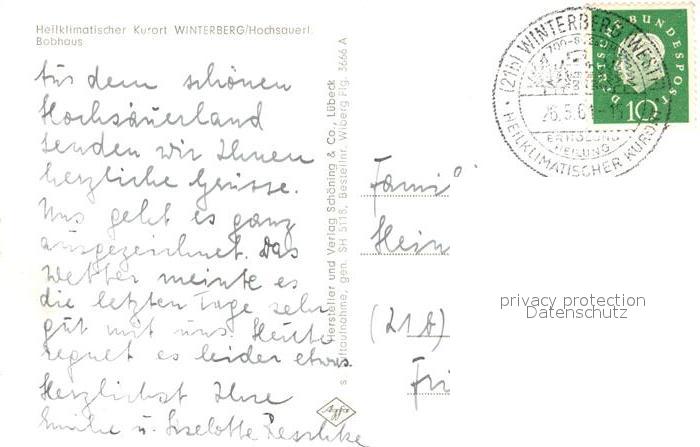 Heilklimatischer Kurort WINTERBERG/Hochsauerl.
Bobhaus
Aus dem schönen
Hochsauerland
senden wir Ihnen
herzliche Grüsse.
Uns geht es ganz
ausgezeichnet. Das
Wetter meinte es
die letzten Tage sehr
gut mit uns. Heute
regnet es leider etwas.
Herzlichst Ihre
Emilie u. Liselotte
Hersteller und Verlag Schöning & Co., Lübeck
Luftaufnahme, gen. SH 5118, Bestellnr. Wiberg Flg. 3666 A
Agfa
Fami
Hein
(21b)
Fri
(21b) WINTERBERG (WESTF)
ERHOLUNG
HEILUNG
HEILKLIMATISCHER KURORT
DEUTSCHE BUNDESPOST
10
privacy protection
Datenschutz